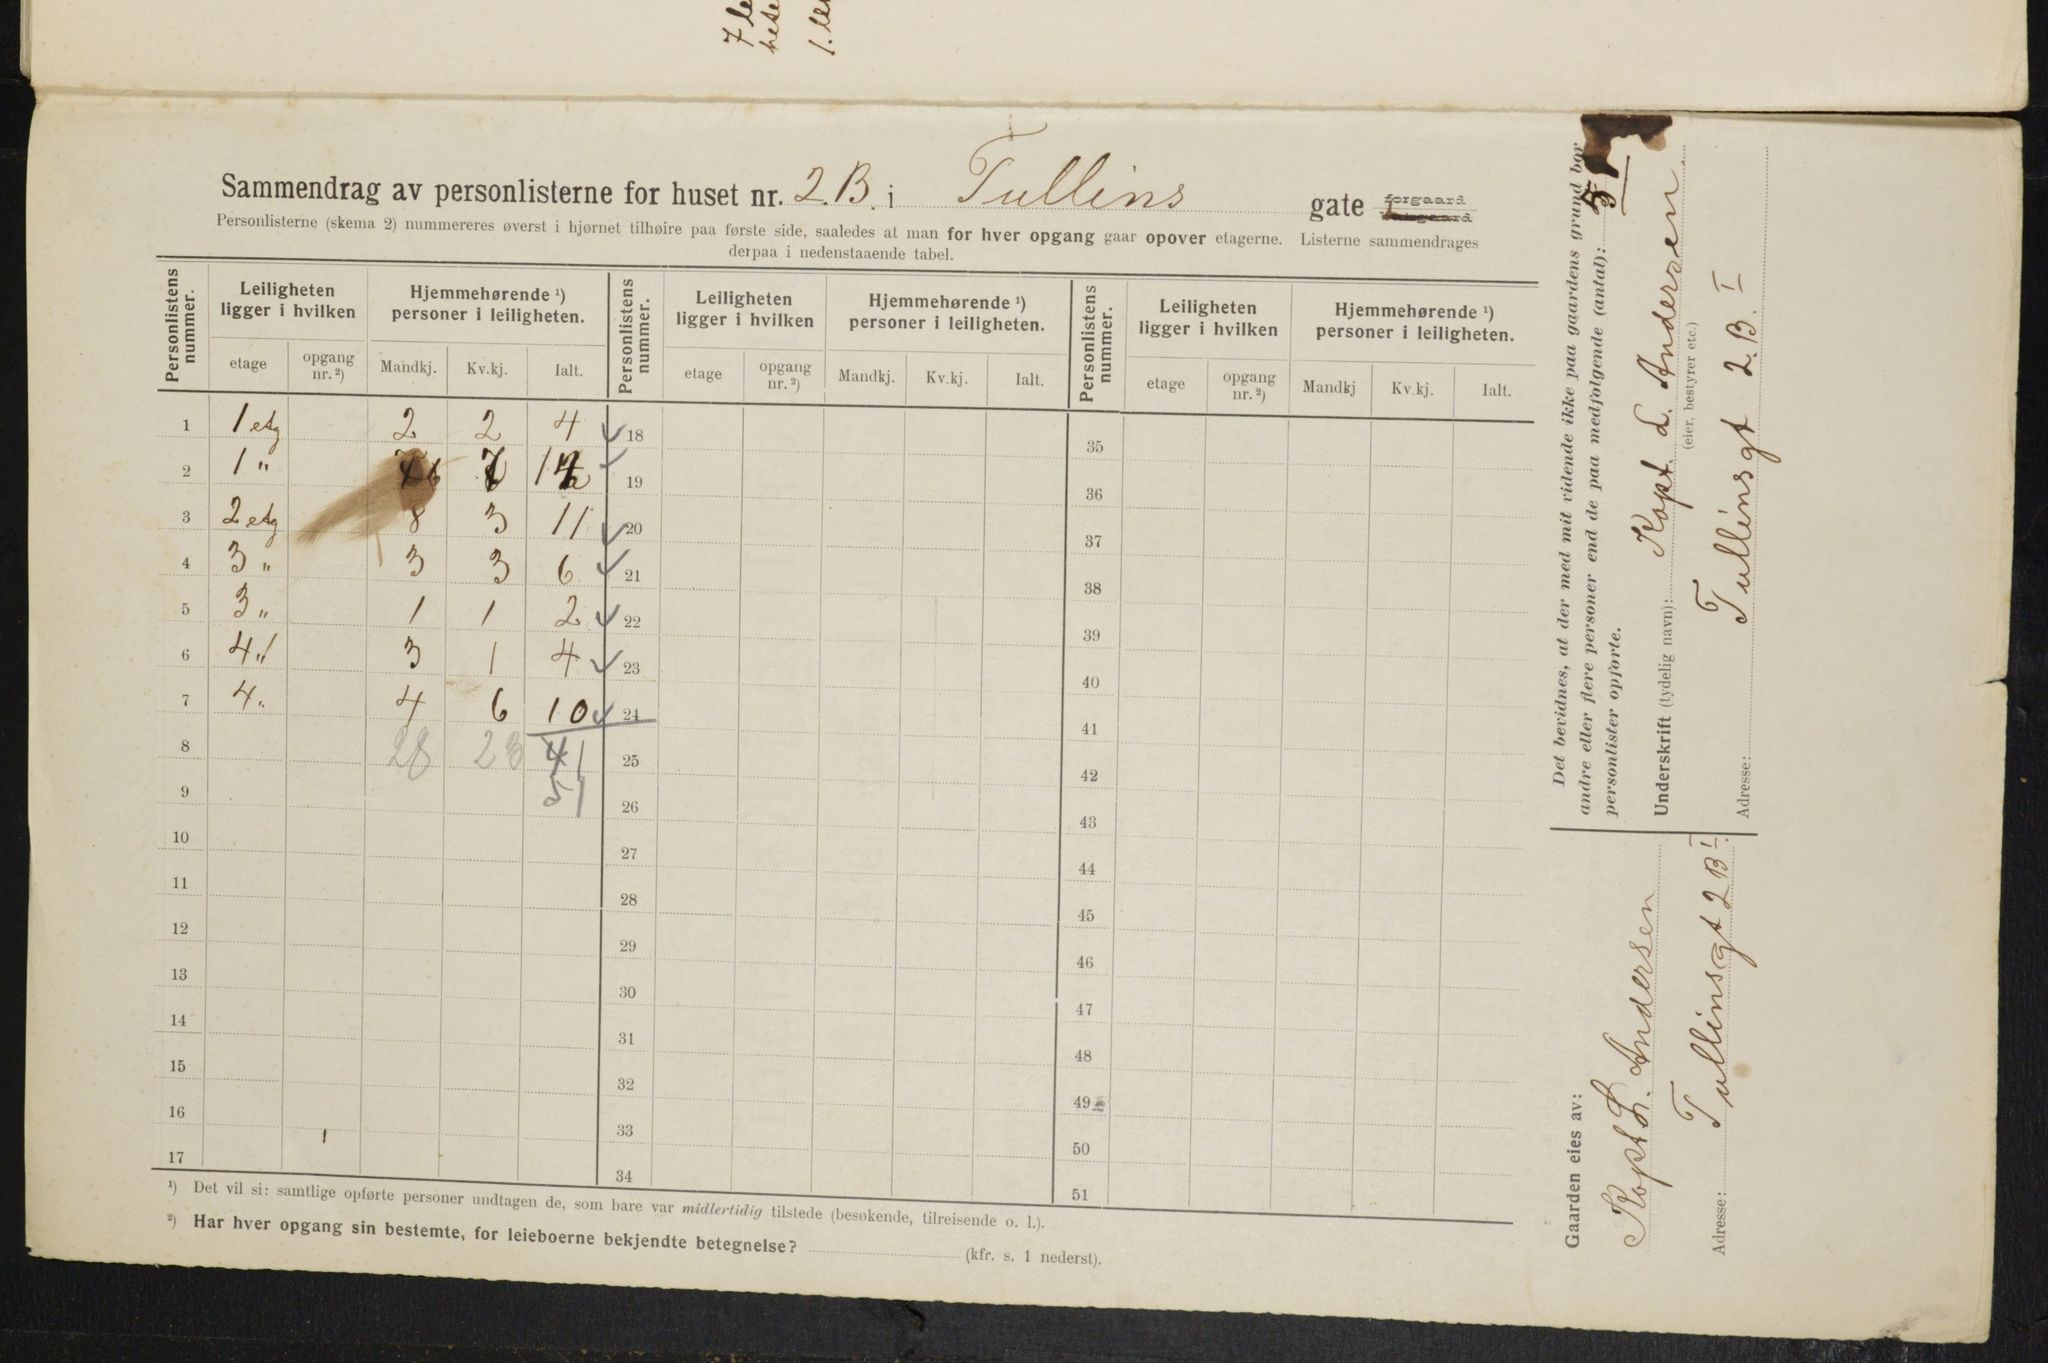 7 le
hese
1. le
Sammendrag av personlisterne for huset nr. 2.B. i Tullins gate forgaard
Personlisterne (skema 2) nummereres øverst i hjørnet tilhøire paa første side, saaledes at man for hver opgang gaar opover etagerne. Listerne sammendrages
derpaa i nedenstaaende tabel.
Personlistens nummer. Leiligheten ligger i hvilken Hjemmehørende ¹) personer i leiligheten. Personlistens nummer. Leiligheten ligger i hvilken Hjemmehørende ¹) personer i leiligheten. Personlistens nummer. Leiligheten ligger i hvilken Hjemmehørende ¹) personer i leiligheten.
etage opgang nr. ²) Mandkj. Kv.kj. Ialt. etage opgang nr. ²) Mandkj. Kv.kj. Ialt. etage opgang nr. ²) Mandkj Kv.kj. Ialt.
1 1 etg 2 2 4 18 35
2 1 " 19 36
3 2 etg 8 3 11 20 37
4 3 " 3 3 6 21 38
5 3 " 1 1 2 22 39
6 4 " 3 1 4 23 40
7 4 " 4 6 10 24 41
8 28 23 41 25 42
9 51 26 43
10 27 44
11 28 45
12 29 46
13 30 47
14 31 48
15 32 49
16 33 50
17 34 51
¹) Det vil si: samtlige opførte personer undtagen de, som bare var midlertidig tilstede (besøkende, tilreisende o. l.).
²) Har hver opgang sin bestemte, for leieboerne bekjendte betegnelse? (kfr. s. 1 nederst).
Det bevidnes, at der med mit vidende ikke paa gaardens grund bor
andre eller flere personer end de paa medfølgende (antal): 
personlister opførte.
Underskrift (tydelig navn): Kapt. L. Andersen
(eier, bestyrer etc.)
Adresse: Tullinsgt 2.B. I
Gaarden eies av:
Kapt L. Andersen
Adresse: Tullinsgt 2 B I